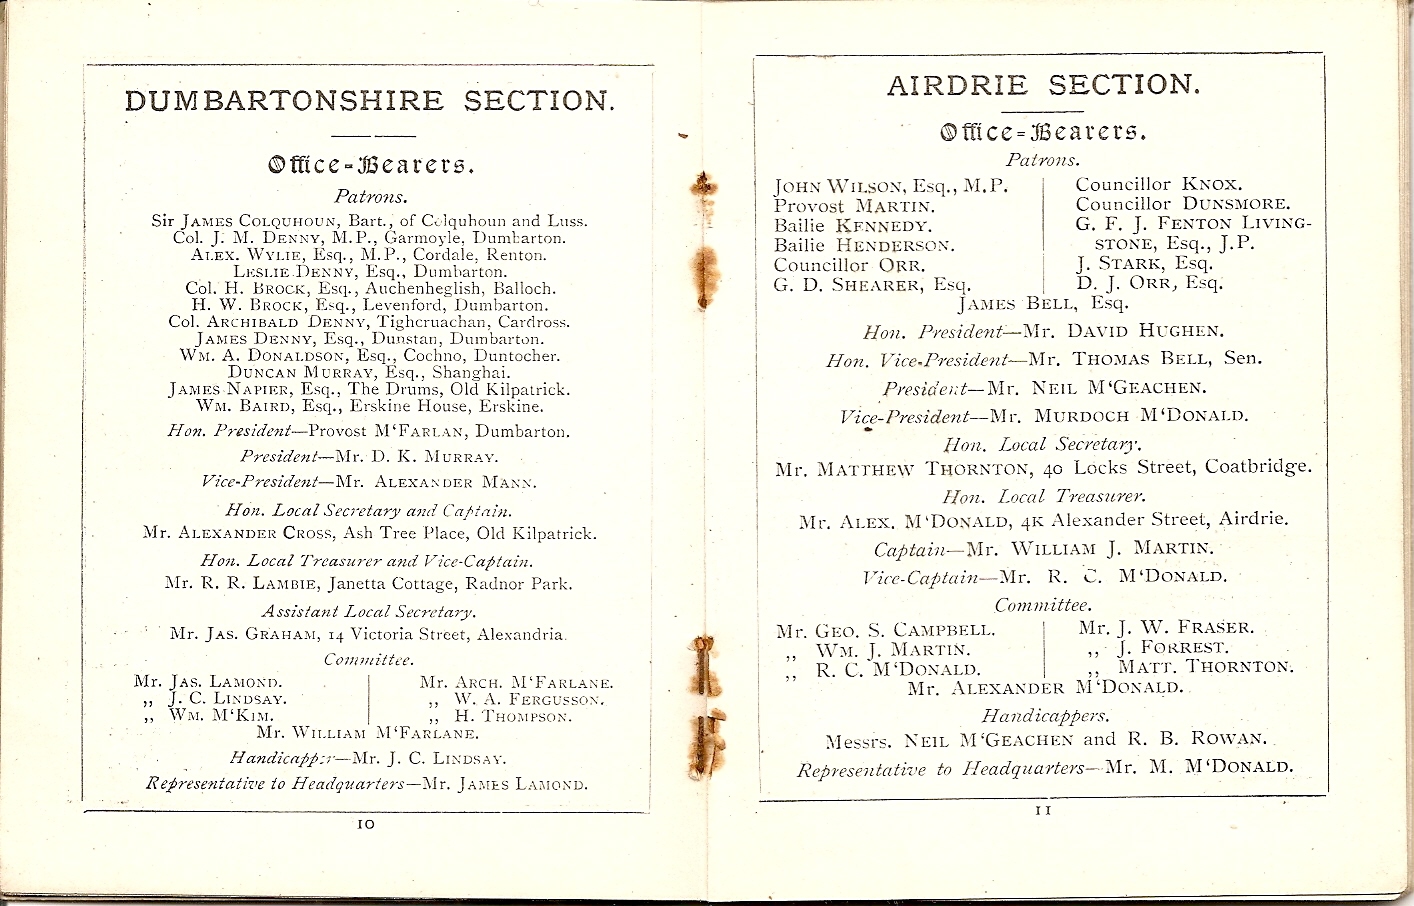 DUMBARTONSHIRE SECTION.
Office-Bearers.
Patrons.
Sir JAMES COLQUHOUN, Bart., of Colquhoun and Luss.
Col. J. M. DENNY, M.P., Garmoyle, Dumbarton.
ALEX. WYLIE, Esq., M.P., Cordale, Renton.
LESLIE DENNY, Esq., Dumbarton.
Col. H. BROCK, Esq., Auchenheglish, Balloch.
H. W. BROCK, Esq., Levenford, Dumbarton.
Col. ARCHIBALD DENNY, Tighcruachan, Cardross.
JAMES DENNY, Esq., Dunstan, Dumbarton.
WM. A. DONALDSON, Esq., Cochno, Duntocher.
DUNCAN MURRAY, Esq., Shanghai.
JAMES NAPIER, Esq., The Drums, Old Kilpatrick.
WM. BAIRD, Esq., Erskine House, Erskine.
Hon. President—Provost M‘FARLAN, Dumbarton.
President—Mr. D. K. MURRAY.
Vice-President—Mr. ALEXANDER MANN.
Hon. Local Secretary and Captain.
Mr. ALEXANDER CROSS, Ash Tree Place, Old Kilpatrick.
Hon. Local Treasurer and Vice-Captain.
Mr. R. R. LAMBIE, Janetta Cottage, Radnor Park.
Assistant Local Secretary.
Mr. JAS. GRAHAM, 14 Victoria Street, Alexandria.
Committee.
Mr. JAS. LAMOND. Mr. ARCH. M‘FARLANE.
„ J. C. LINDSAY. „ W. A. FERGUSSON.
„ WM. M‘KIM. „ H. THOMPSON.
Mr. WILLIAM M‘FARLANE.
Handicapper—Mr. J. C. LINDSAY.
Representative to Headquarters—Mr. JAMES LAMOND.
10
AIRDRIE SECTION.
Office=Bearers.
Patrons.
JOHN WILSON, Esq., M.P.
Provost MARTIN.
Bailie KENNEDY.
Bailie HENDERSON.
Councillor ORR.
G. D. SHEARER, Esq.
Councillor KNOX.
Councillor DUNSMORE.
G. F. J. FENTON LIVING-
STONE, Esq., J.P.
J. STARK, Esq.
D. J. ORR, Esq.
JAMES BELL, Esq.
Hon. President—Mr. DAVID HUGHEN.
Hon. Vice-President—Mr. THOMAS BELL, Sen.
President—Mr. NEIL M‘GEACHEN.
Vice-President—Mr. MURDOCH M‘DONALD.
Hon. Local Secretary.
Mr. MATTHEW THORNTON, 40 Locks Street, Coatbridge.
Hon. Local Treasurer.
Mr. ALEX. M‘DONALD, 4K Alexander Street, Airdrie.
Captain—Mr. WILLIAM J. MARTIN.
Vice-Captain—Mr. R. C. M‘DONALD.
Committee.
Mr. GEO. S. CAMPBELL. Mr. J. W. FRASER.
„ WM. J. MARTIN. „ J. FORREST.
„ R. C. M‘DONALD. „ MATT. THORNTON.
Mr. ALEXANDER M‘DONALD.
Handicappers.
Messrs. NEIL M‘GEACHEN and R. B. ROWAN.
Representative to Headquarters—Mr. M. M‘DONALD.
11